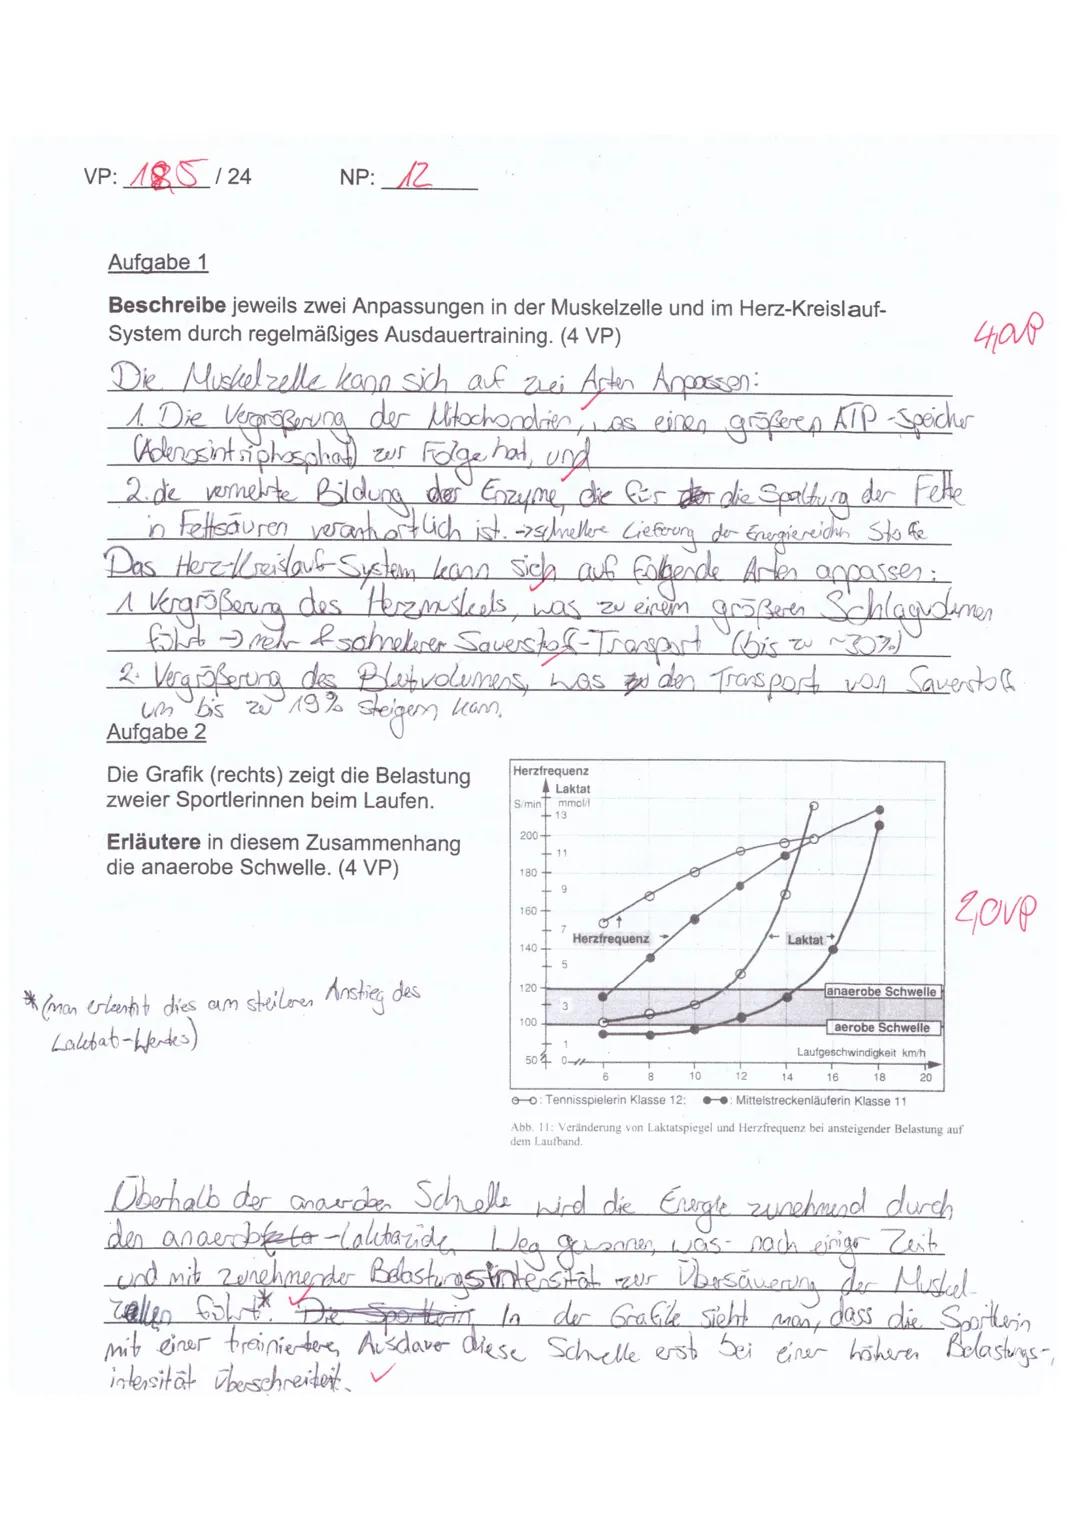 VP: 18,5 / 24 NP: 12
Aufgabe 1
Beschreibe jeweils zwei Anpassungen in der Muskelzelle und im Herz-Kreislauf-
System durch regelmäßiges Ausdauertraining. (4 VP)
4,0VP
Die Muskelzelle kann sich auf zwei Arten Anpassen:
1. Die Vergrößerung der Mitochondrien, was einen größeren ATP-Speicher
(Adenosintriphosphat) zur Folge hat, und
2. die vermehrte Bildung der Enzyme, die für die Spaltung der Fette
in Fettsäuren verantwortlich ist. → schnellere Lieferung der Energiereichen Stoffe
Das Herz-Kreislauf-System kann sich auf folgende Arten anpassen:
1 Vergrößerung des Herzmuskels, was zu einem größeren Schlagvolumen
führt → mehr & schnellerer Sauerstoff-Transport (bis zu ~30%)
2. Vergrößerung des Blutvolumens, was den Transport von Sauerstoff
um bis zu 19% steigern kann.
Aufgabe 2
Die Grafik (rechts) zeigt die Belastung
zweier Sportlerinnen beim Laufen.
Erläutere in diesem Zusammenhang
die anaerobe Schwelle. (4 VP)
2,0VP
* (man erkennt dies am steileren Anstieg des
Laktat-Wertes)
Herzfrequenz
Laktat
S/min mmol/l
13
200
11
180
9
160
7
Herzfrequenz
Laktat
140
5
120
anaerobe Schwelle
3
100
aerobe Schwelle
1
Laufgeschwindigkeit km/h
50 0
6 8 10 12 14 16 18 20
: Tennisspielerin Klasse 12; : Mittelstreckenläuferin Klasse 11
Abb. 11: Veränderung von Laktatspiegel und Herzfrequenz bei ansteigender Belastung auf
dem Laufband.
Oberhalb der anaeroben Schwelle wird die Energie zunehmend durch
den anaerob-laktaziden Weg gewonnen, was nach einiger Zeit
und mit zunehmender Belastungsintensität zur Übersäuerung der Muskel-
zellen führt.* Die Sportlerin In der Grafik sieht man, dass die Sportlerin
mit einer trainierteren Ausdauer diese Schwelle erst bei einer höheren Belastungs-
intensität überschreitet.